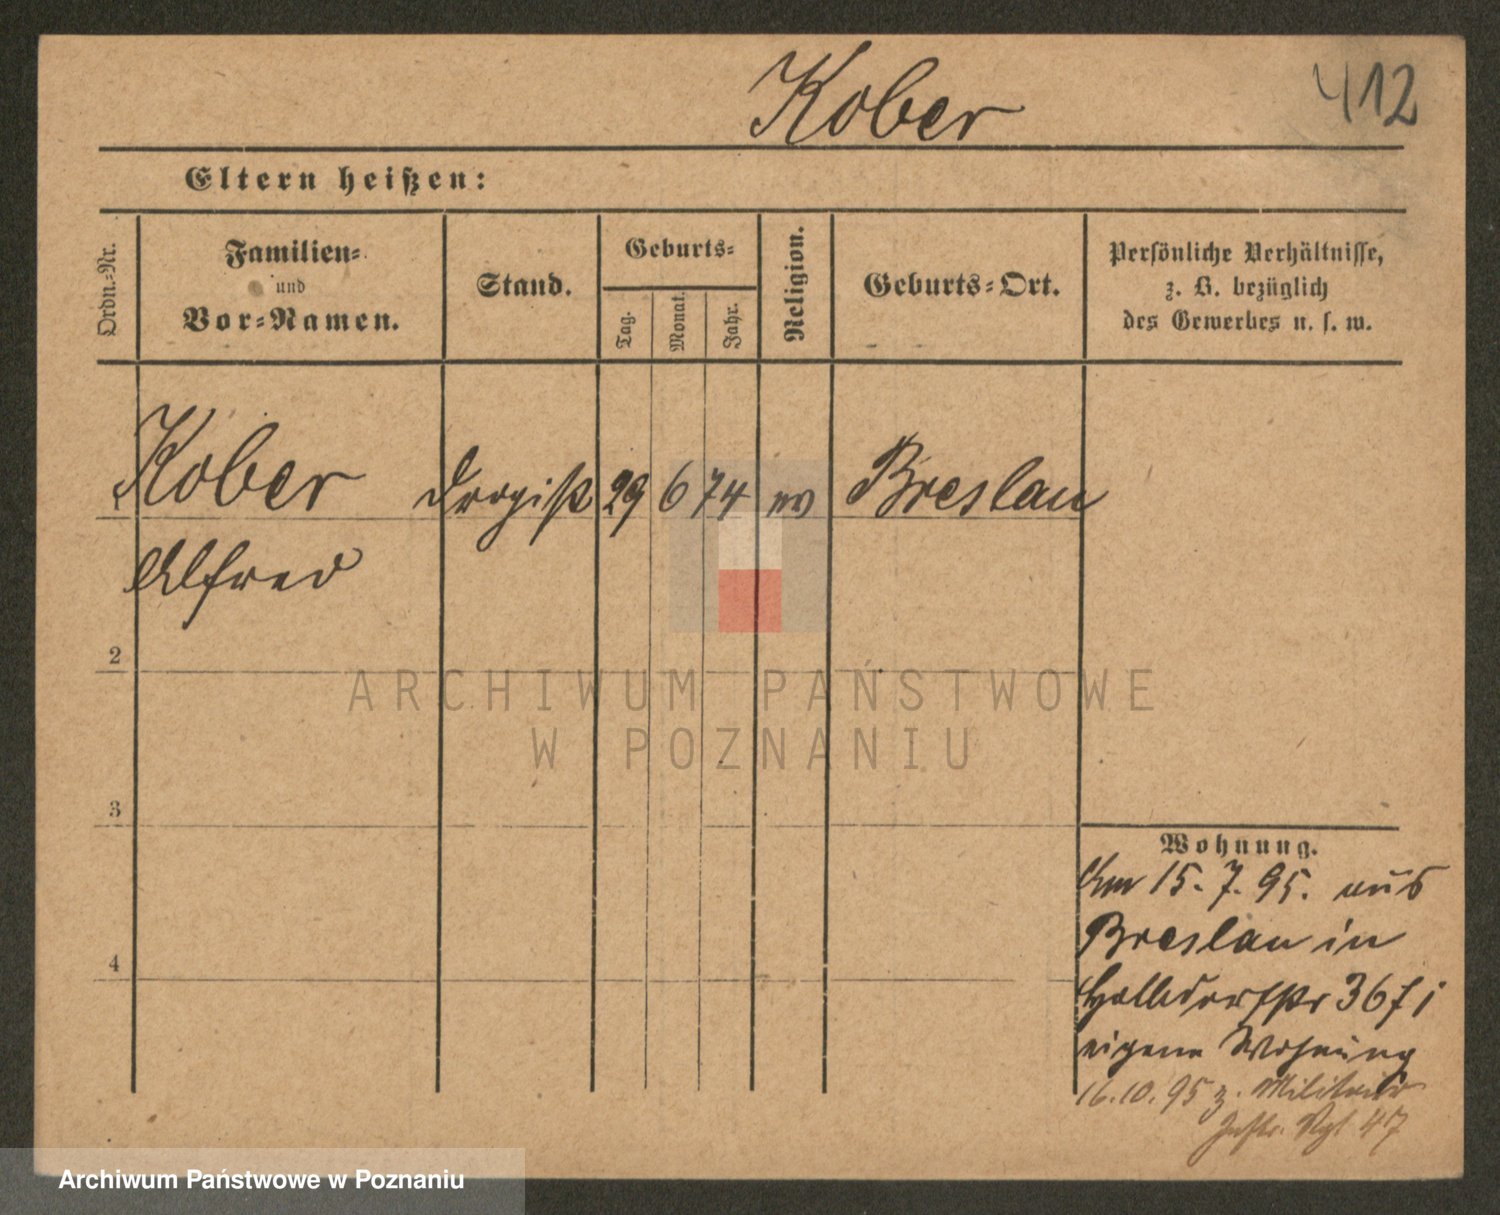 Kober
412
Eltern heißen:
Ordn.-Nr.
Familien-
und
Vor-Namen.
Stand.
Geburts-
Tag.
Monat.
Jahr.
Religion.
Geburts-Ort.
Persönliche Verhältnisse,
z. B. bezüglich
des Gewerbes u. s. w.
1 Kober Drogist 29 6 74 ev Breslau
Alfred
2
3
4
Wohnung.
Am 15. 7. 95. aus
Breslau in
36
eigene Wohnung
16.10.95 z. Militair
Rgt 47
ARCHIWUM PAŃSTWOWE
W POZNANIU
Archiwum Państwowe w Poznaniu